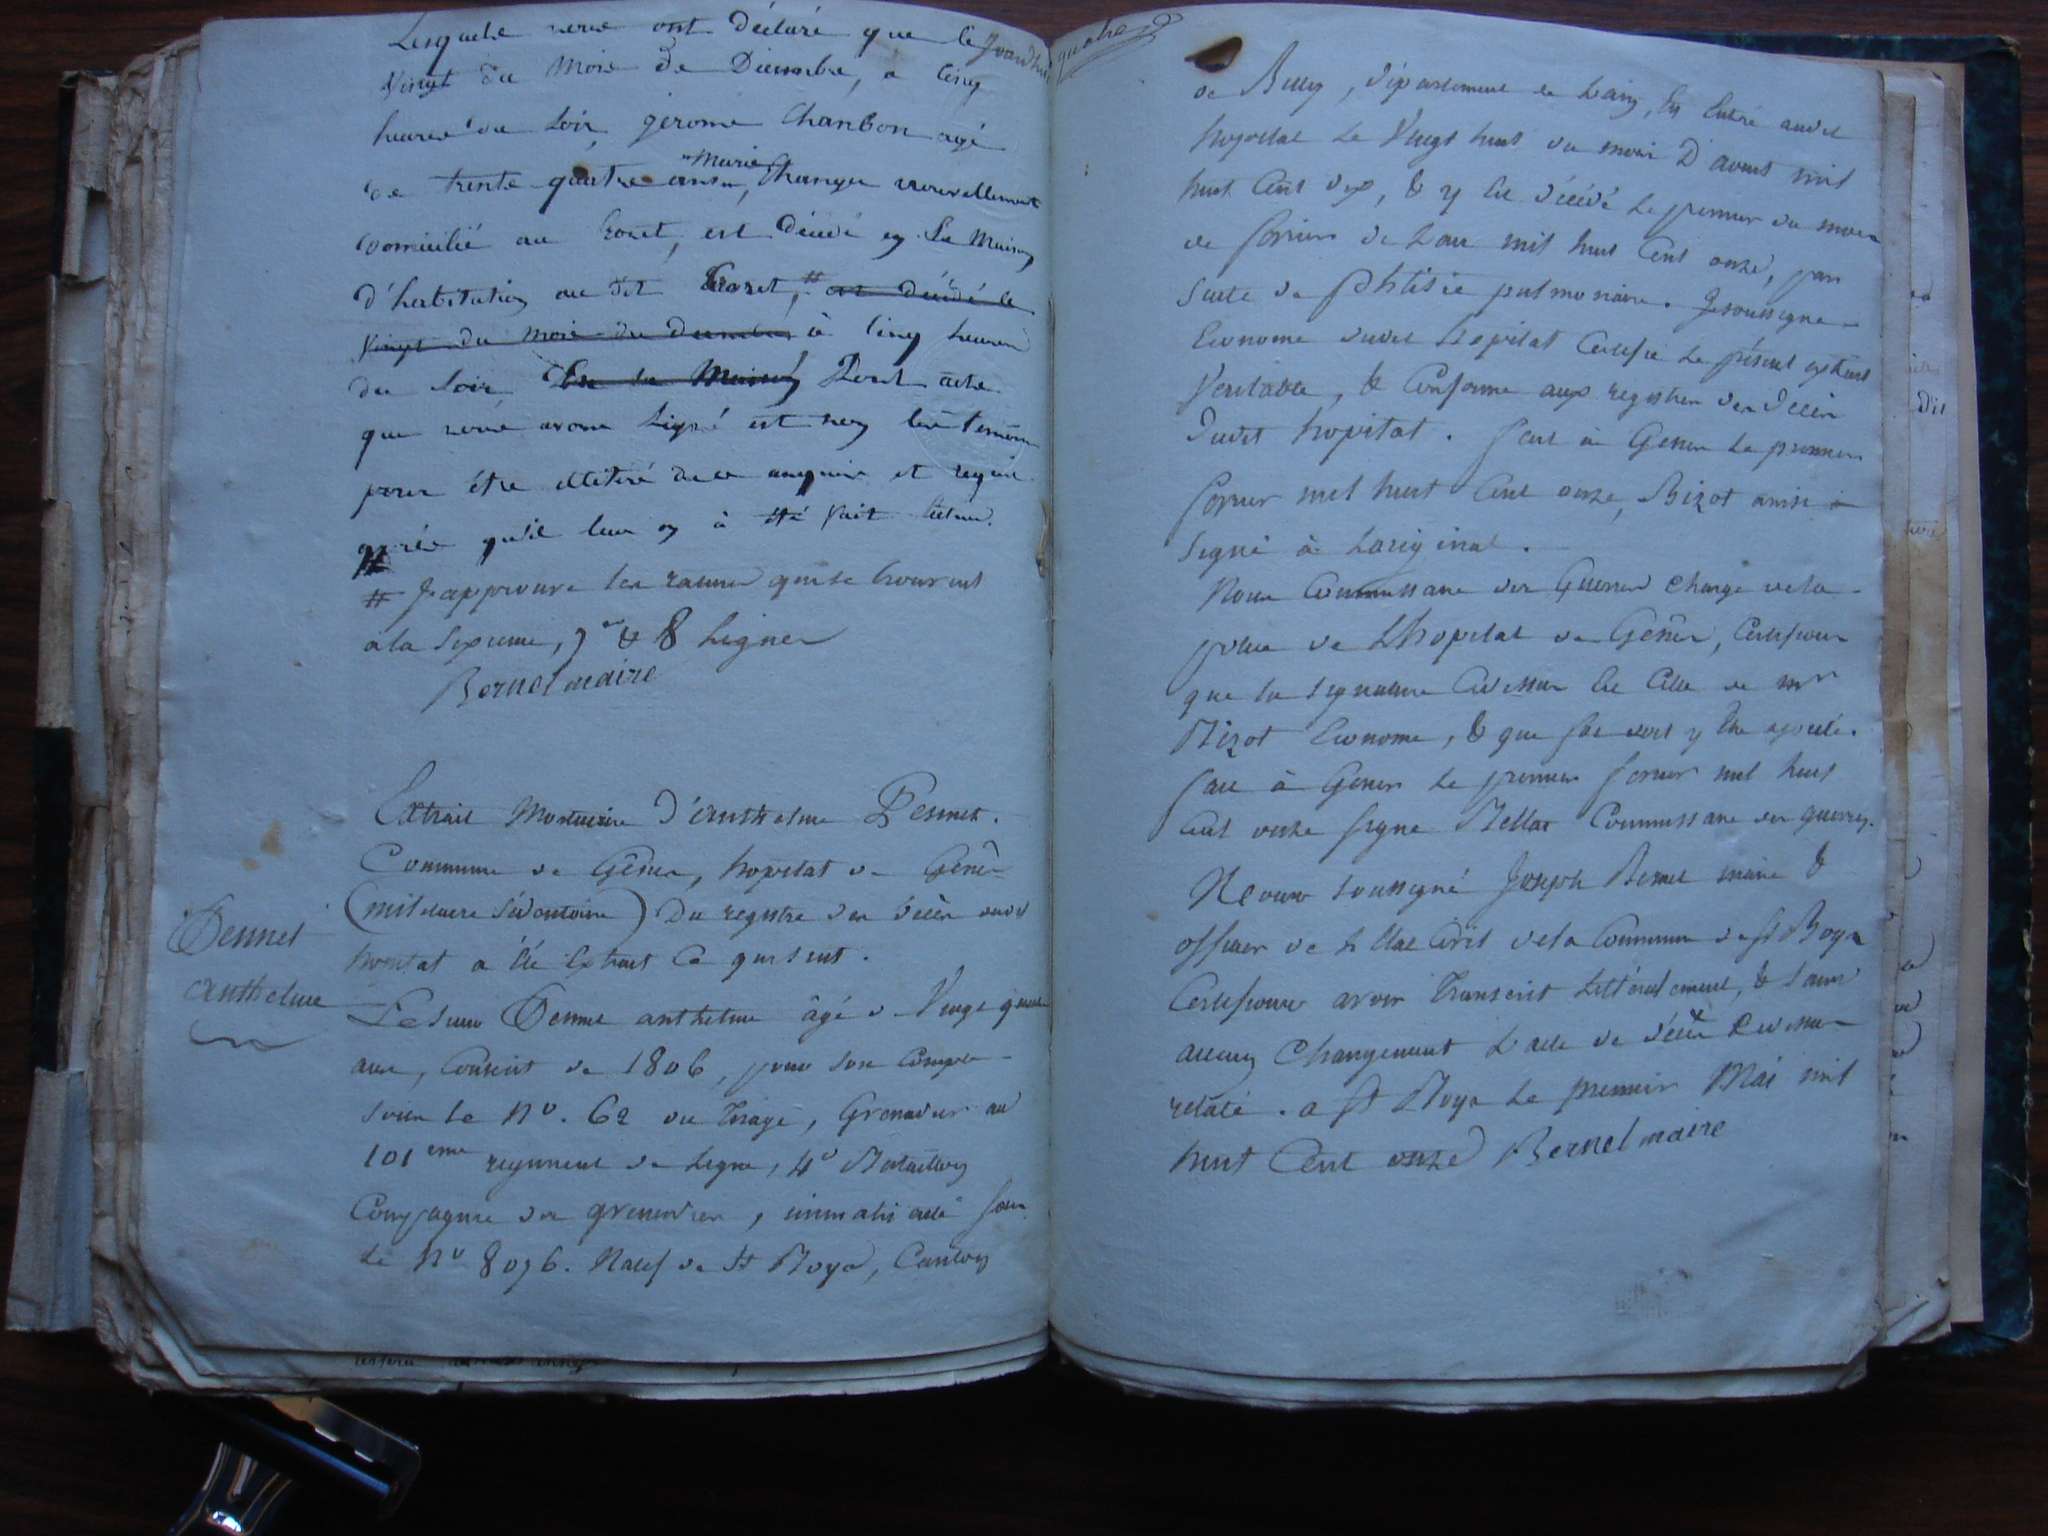 Lesquels nous ont déclaré que le jourdhui
Vingt du mois de Décembre, a cinq
heures du soir, gerome Chanbon agé
de trente quatre ans, Marie nouvellement
domicilié au est décédé en La Maison
d'habitation au dit # est décédé le
Vingt du mois de decembre à cinq heures
du soir En sa Maison Dont acte
que nous avons signé et non les temoins
pour être de ce anquis et requis
après qu'il leur en à été fait lecture.
# J'approuve les rature qui se trouvent
a la Sixieme, 7e & 8 Lignes
Bernel maire
Extrait Mortuaire D'anthelme Pennet.
Commune de Gênes, hopital de Gênes
(militaire Sédentaire) Du registre des décès dudit
hopital a été Extrait Ce qui suit.
Pennet
anthelme
Le Sieur Pennet anthelme âgé de Vingt quatre
ans, Conscrit de 1806, pour son Compte
sous le No. 62 du tirage, Grenadier au
101eme regiment de Ligne, 4e Bataillon
Compagnie des grenadiers, immatriculé sous
Le No 8076. Natif de St Boys, Canton
quatre
de Belley, département de Lain, Est Entré audit
hopital Le Vingt huit du mois D'aoust mil
huit Cent dix, & y Est décédé Le premier du mois
de fevrier de Lan mil huit Cent onze, par
suite de phtisie pulmonaire. Je soussigné
Econome dudit hopital Certifie Le présent extrait
Veritable, & Conforme aux registres des décès
dudit hopital. fait à Gênes Le premier
fevrier mil huit Cent onze, Bizot ainsi
Signé à Loriginal.
Nous Commissaire des Guerres Chargé de la
police de L'hopital de Gênes, Certifions
que la signature Cidessus Est Celle de mr
Bizot Econome, & que foi doit y Etre ajoutée.
fait à Gênes Le premier fevrier mil huit
Cent onze signe Mellar Commissaire des guerres.
Nous soussigné Joseph Bernel maire &
officier de L'Etat Civil de la Commune de St Boys
Certifions avoir transcrit Littéralement, & sans
aucun Changement L'acte de décès Cidessus
relaté. a St Boys Le premier Mai mil
huit Cent onze Bernel maire